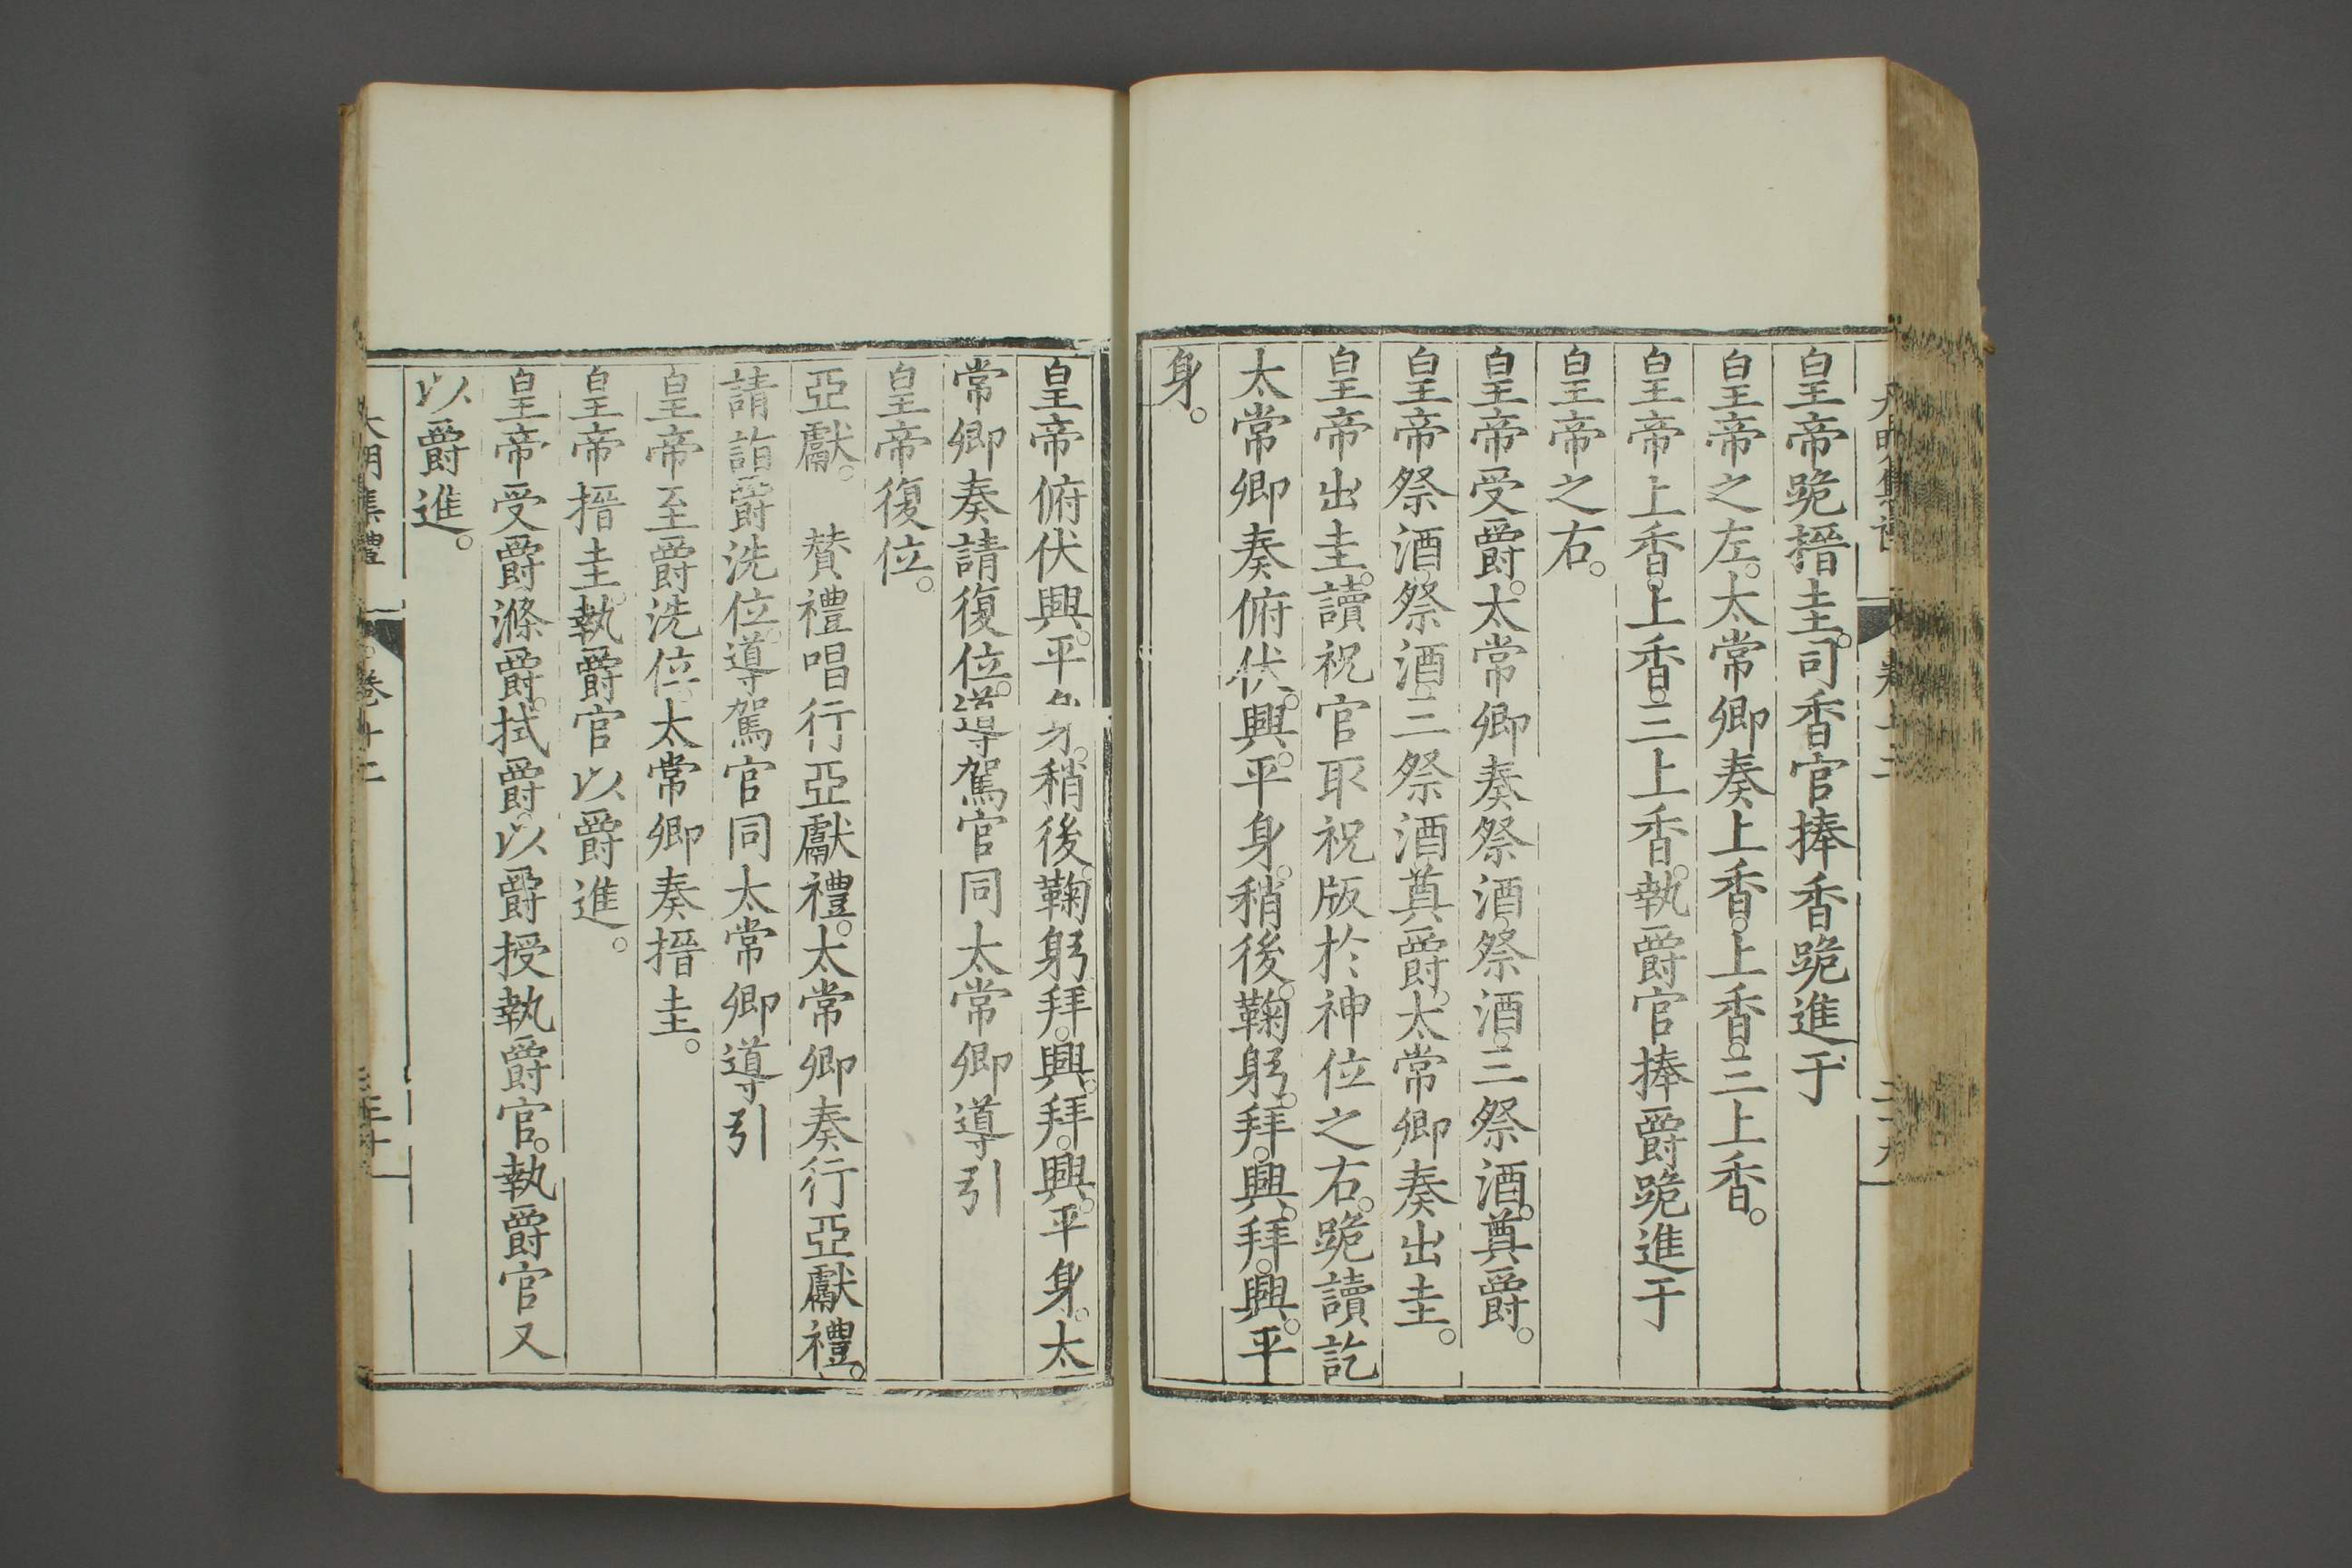 皇帝跪搢圭。司香官捧香跪進于
皇帝之左。太常卿奏上香。上香。三上香。
皇帝上香。上香。三上香。執爵官捧爵跪進于
皇帝之右。
皇帝受爵。太常卿奏祭酒。祭酒。三祭酒。奠爵。
皇帝祭酒。祭酒。三祭酒。奠爵。太常卿奏出圭。
皇帝出圭。讀祝官取祝版於神位之右。跪讀訖
太常卿奏俯伏。興。平身。稍後。鞠躬。拜。興。拜。興。平
身。
皇帝俯伏興。平身。稍後。鞠躬拜。興。拜。興。平身。太
常卿奏請復位。導駕官同太常卿導引
皇帝復位。
亞獻。 贊禮唱行亞獻禮。太常卿奏行亞獻禮。
請詣爵洗位。導駕官同太常卿導引
皇帝至爵洗位。太常卿奏搢圭。
皇帝搢圭。執爵官以爵進。
皇帝受爵滌爵。拭爵。以爵授執爵官。執爵官又
以爵進。
大明集禮 卷十二 三十